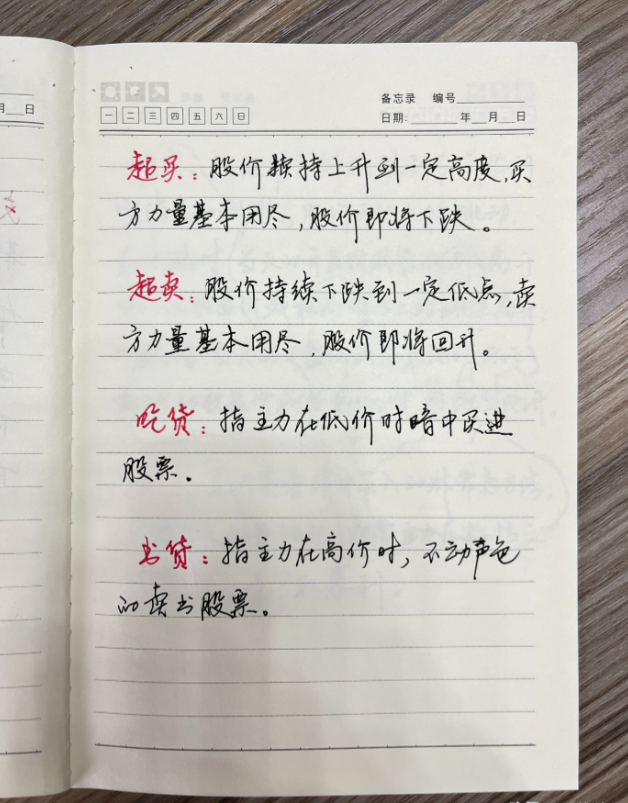 备忘录 编号
一 二 三 四 五 六 日
日期: 年 月 日
月 日
超买：股价持续上升到一定高度,买
方力量基本用尽,股价即将下跌。
超卖：股价持续下跌到一定低点,卖
方力量基本用尽,股价即将回升。
吃货：指主力在低价时暗中买进
股票。
出货：指主力在高价时,不动声色
的卖出股票。